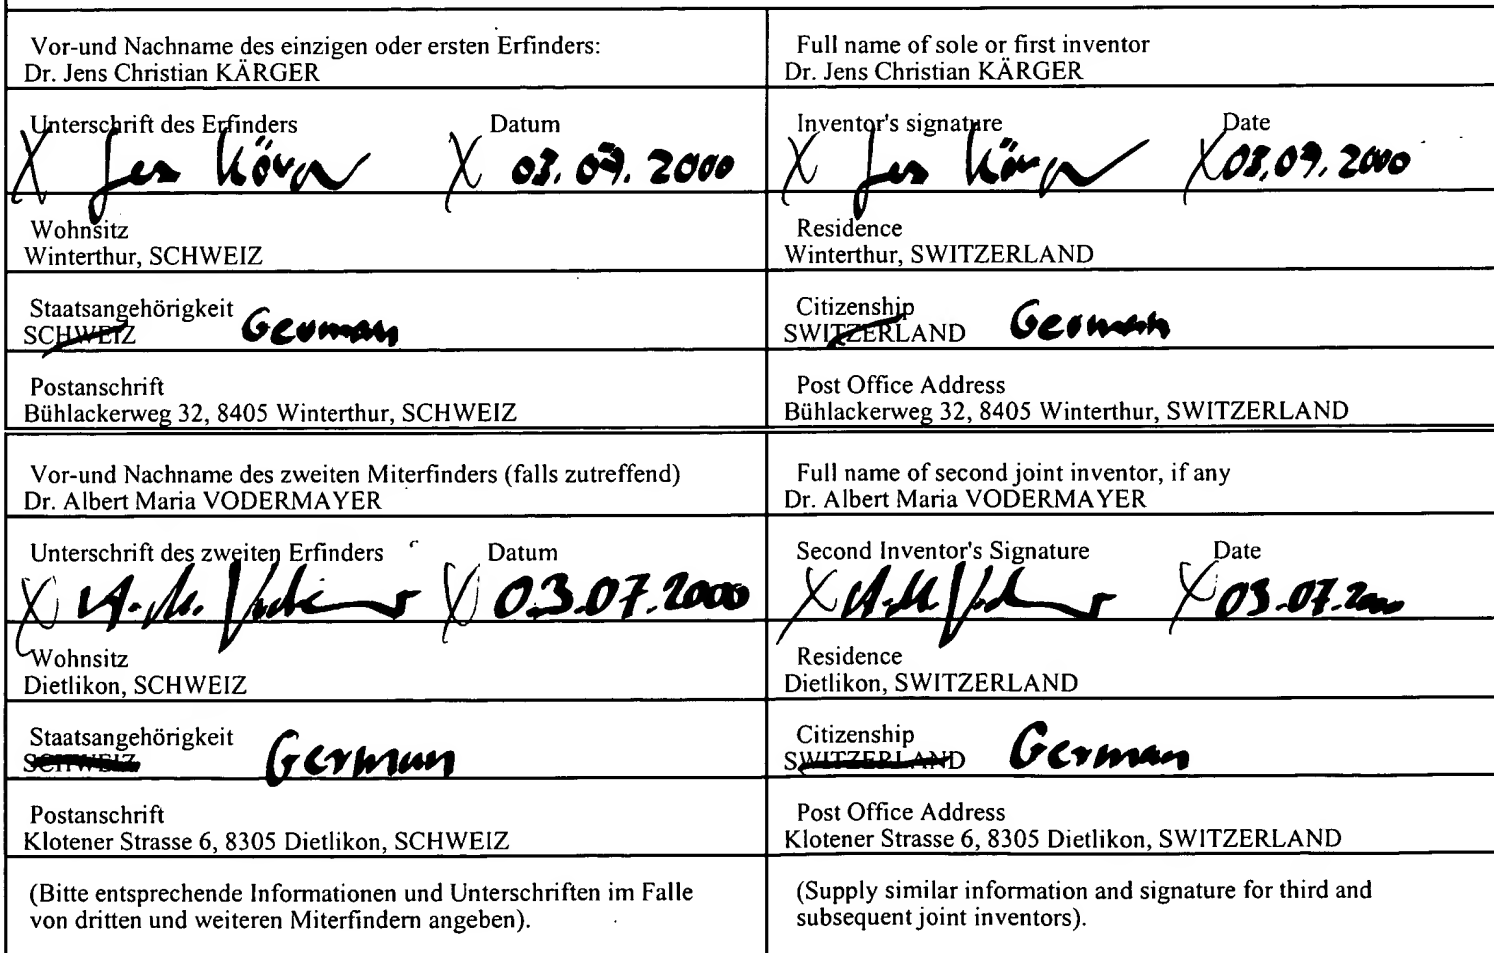 Vor-und Nachname des einzigen oder ersten Erfinders:
Dr. Jens Christian KÄRGER
Full name of sole or first inventor
Dr. Jens Christian KÄRGER
Unterschrift des Erfinders Datum
X X 03.07.2000
Inventor's signature Date
X X 03.07.2000
Wohnsitz
Winterthur, SCHWEIZ
Residence
Winterthur, SWITZERLAND
Staatsangehörigkeit
SCHWEIZ German
Citizenship
SWITZERLAND German
Postanschrift
Bühlackerweg 32, 8405 Winterthur, SCHWEIZ
Post Office Address
Bühlackerweg 32, 8405 Winterthur, SWITZERLAND
Vor-und Nachname des zweiten Miterfinders (falls zutreffend)
Dr. Albert Maria VODERMAYER
Full name of second joint inventor, if any
Dr. Albert Maria VODERMAYER
Unterschrift des zweiten Erfinders Datum
X A.M. X 03.07.2000
Second Inventor's Signature Date
X A.M. X 03.07.2000
Wohnsitz
Dietlikon, SCHWEIZ
Residence
Dietlikon, SWITZERLAND
Staatsangehörigkeit
SCHWEIZ German
Citizenship
SWITZERLAND German
Postanschrift
Klotener Strasse 6, 8305 Dietlikon, SCHWEIZ
Post Office Address
Klotener Strasse 6, 8305 Dietlikon, SWITZERLAND
(Bitte entsprechende Informationen und Unterschriften im Falle
von dritten und weiteren Miterfindern angeben).
(Supply similar information and signature for third and
subsequent joint inventors).